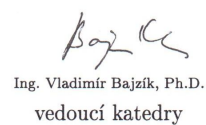 Ing. Vladimír Bajzík, Ph.D.
vedoucí katedry